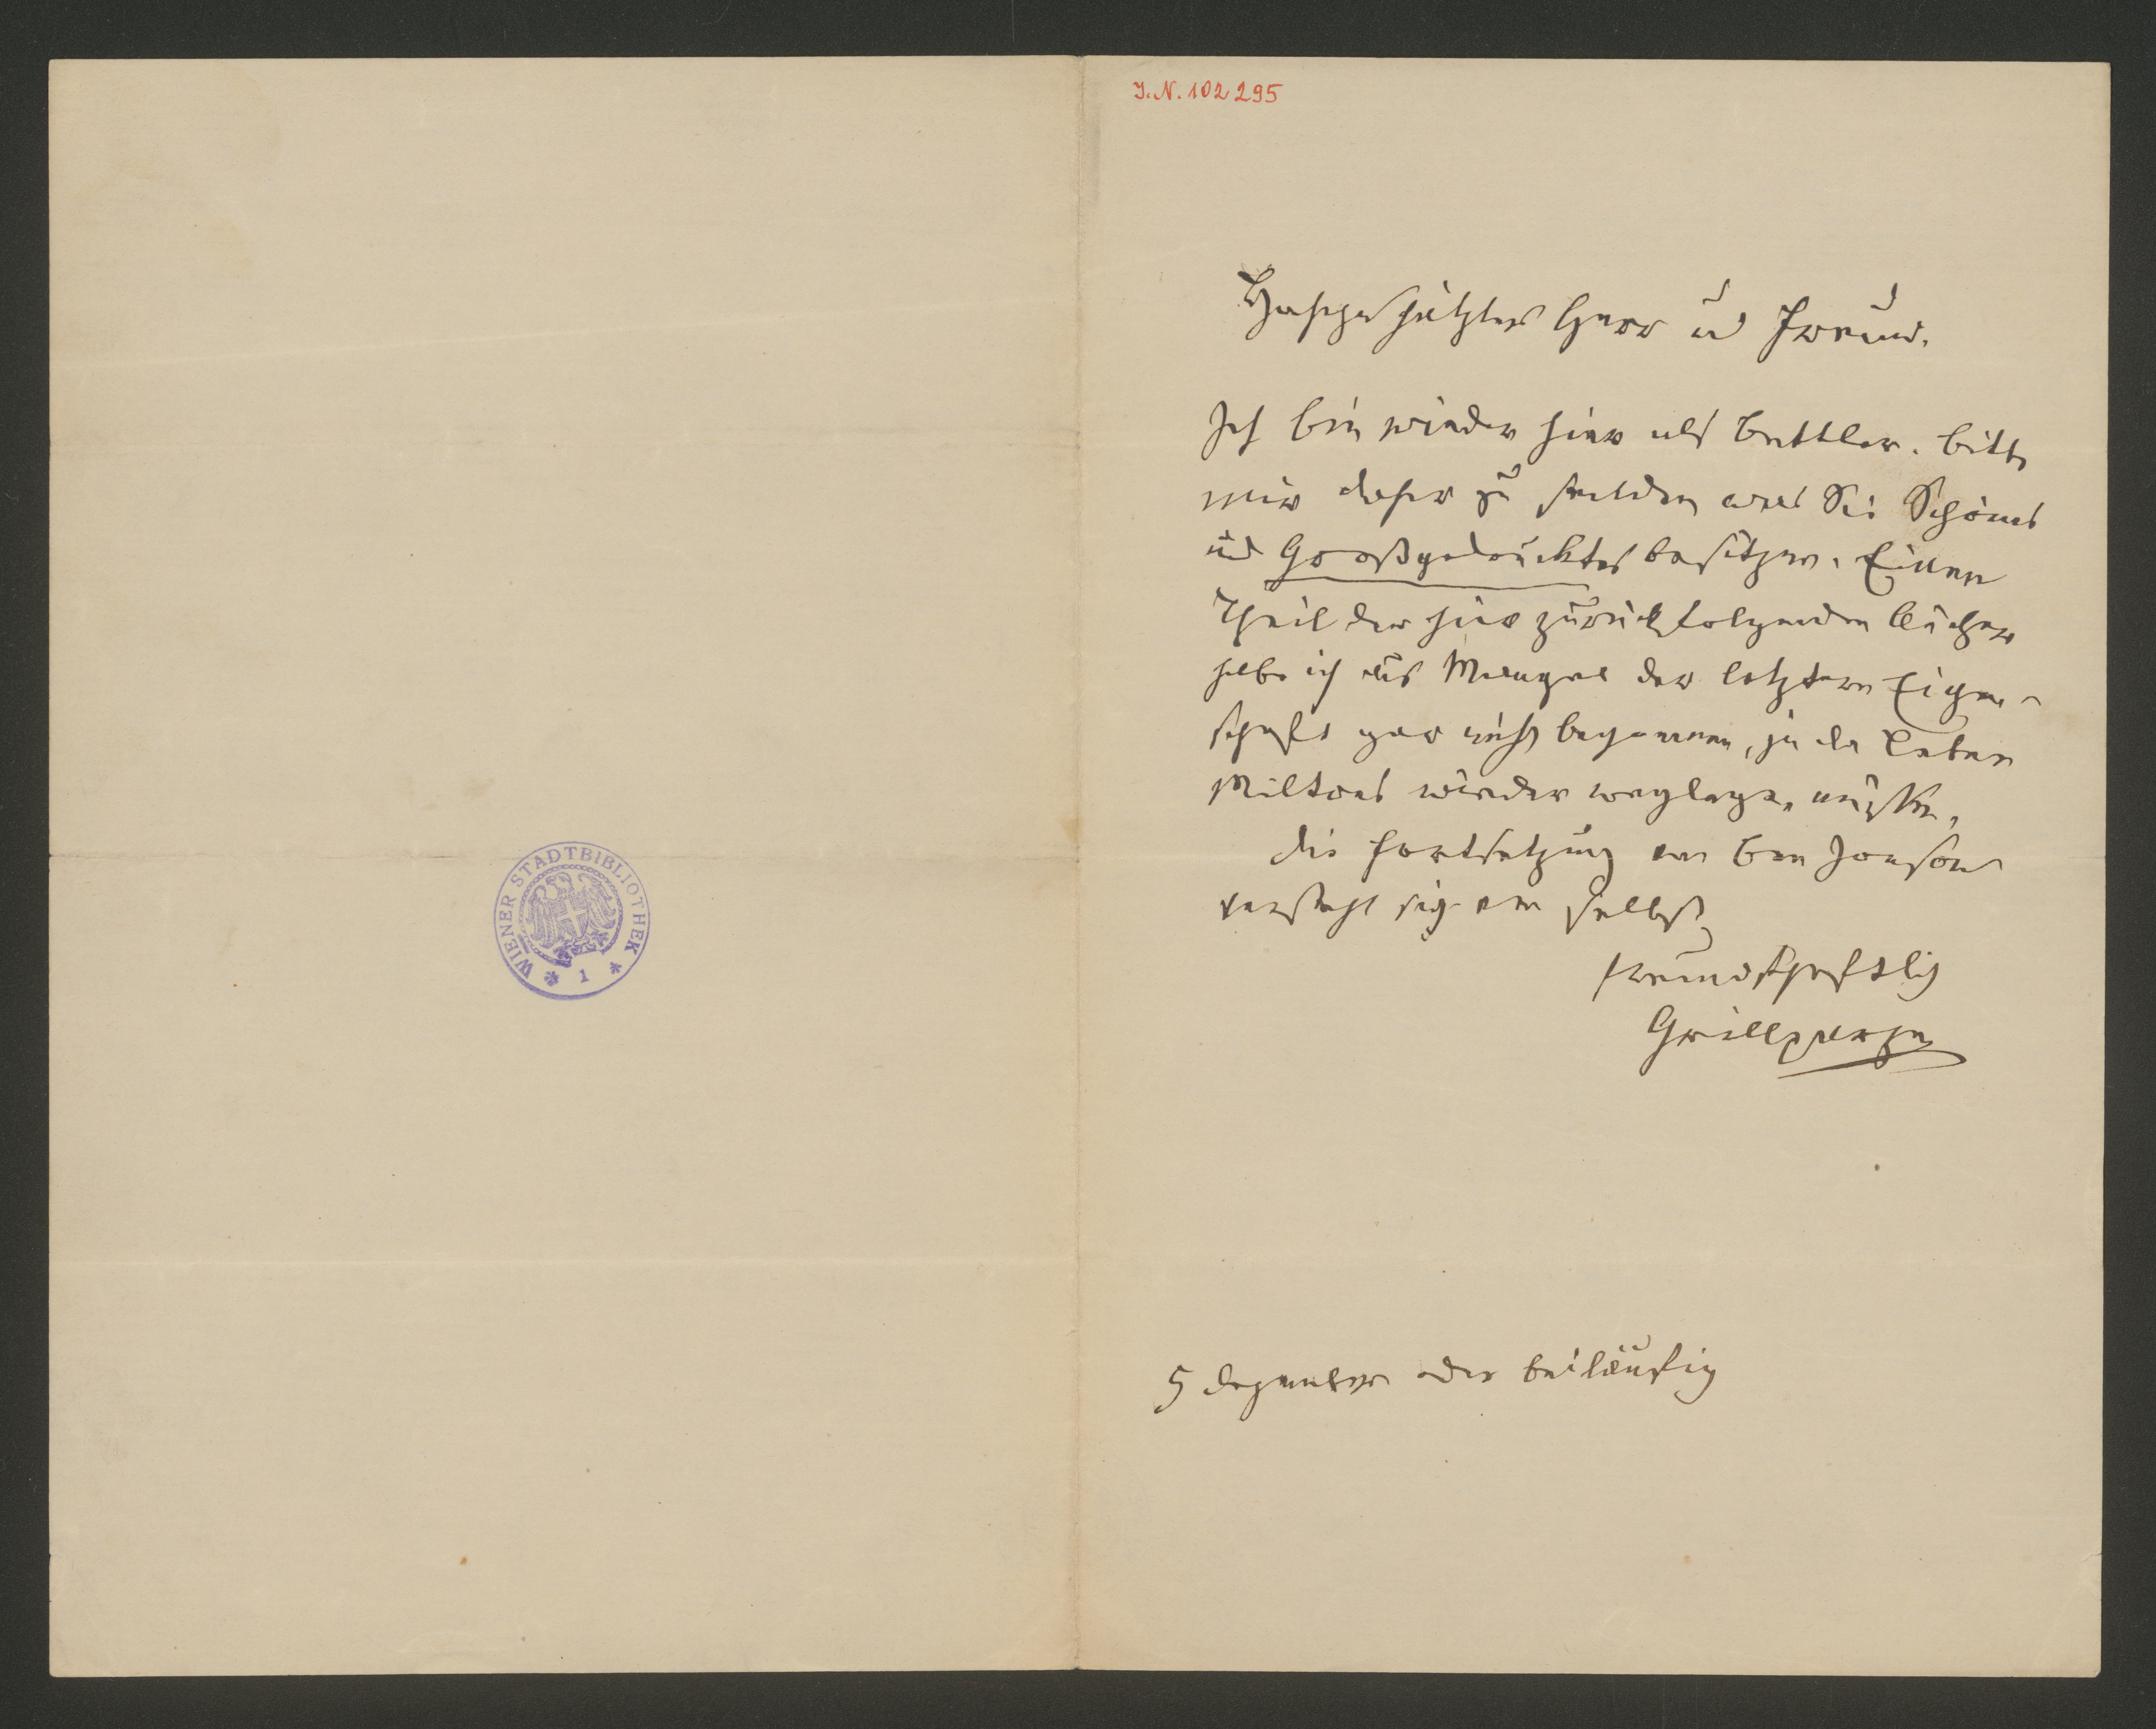 WIENER STADTBIBLIOTHEK
* 1 *
I.N. 102295
Hochgeschätzter Herr und Freund.
Ich bin wieder hier als Bettler. bitte
mir daher zu senden was Sie Schönes
und Großgedrucktes besitzen. Einen
Theil der hier zurückfolgenden Bücher
habe ich aus Mangel der letztern Eigen-
schaft gar nicht begonnen, ja das Leben
Miltons wieder weglegen müssen.
Die Fortsetzung von Ben Jonson
versteht sich von selbst
freundschaftlich
Grillparzer
5 Dezember oder beiläufig